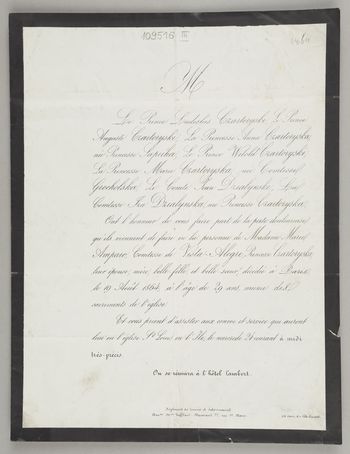 109516 III
M
Le Prince Ladislas Czartoryski, Le Prince
Auguste Czartoryski, La Princesse Anna Czartoryska,
née Princesse Sapieha, Le Prince Witold Czartoryski,
La Princesse Marie Czartoryska, née Comtesse
Grocholska, Le Comte Jean Działyński, La
Comtesse Działyńska, née Princesse Czartoryska,
Ont l'honneur de vous faire part de la perte douloureuse
qu'ils viennent de faire en la personne de Madame Marie
Amparo, Comtesse de Vista-Alegre, Princesse Czartoryska,
leur épouse, mère, belle fille et belle sœur, décédée à Paris,
le 19 Août 1864, à l'âge de 29 ans, munie des
sacrements de l'église.
Et vous prient d'assister aux convoi et service qui auront
lieu en l'église St Louis en l'Ile, le mercredi 24 courant à midi
très-précis.
On se réunira à l'hôtel Lambert.
Règlement de Convois et